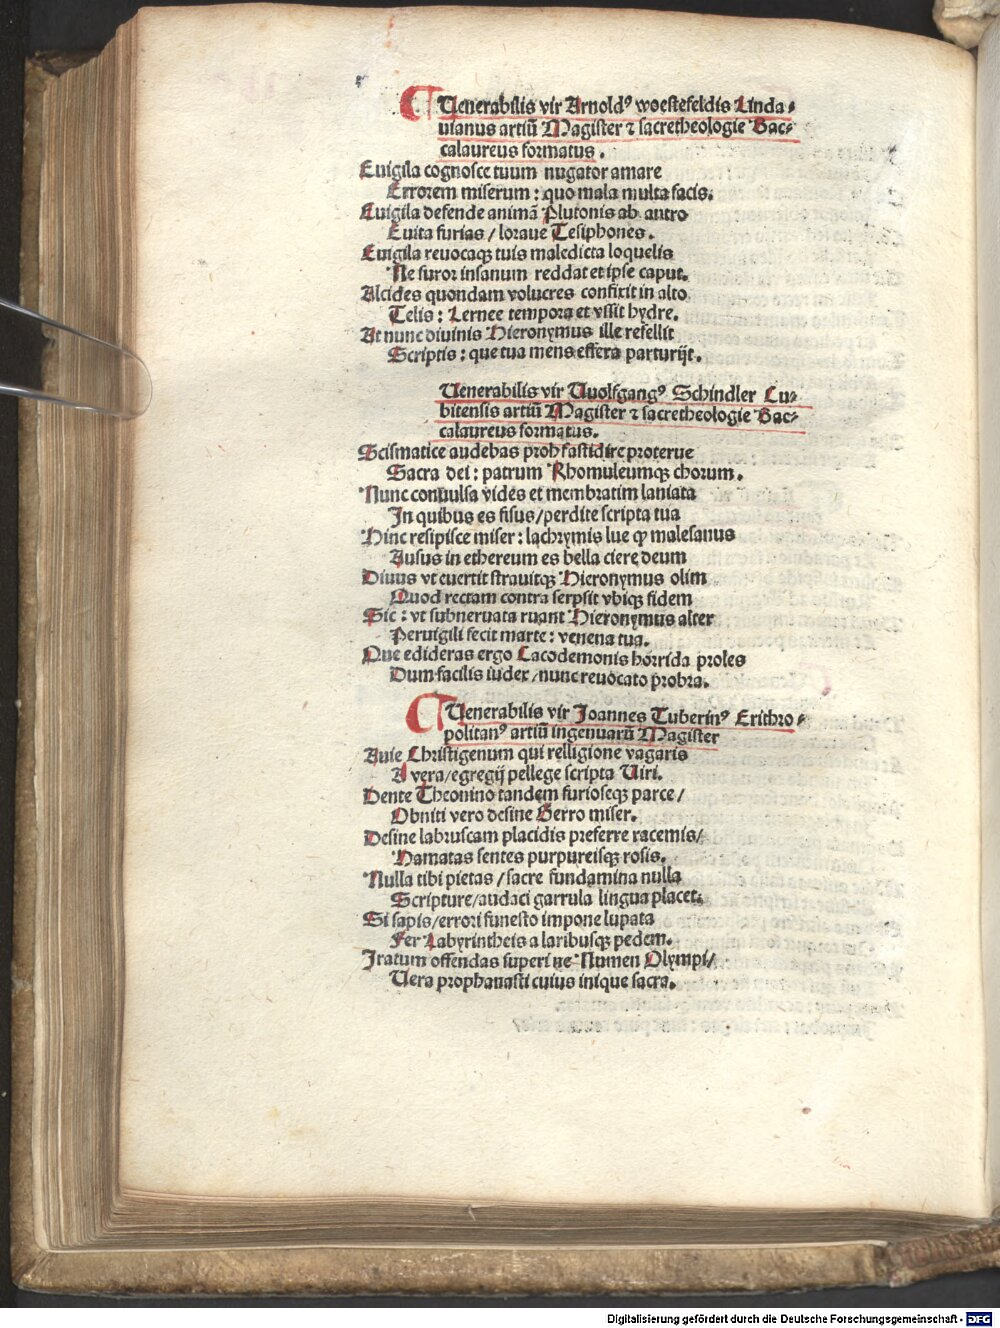 Uenerabilis vir Arnoldꝰ woestefeldis Linda⸗
uianus artiū Magister ⁊ sacretheologie Bac⸗
calaureus formatus.
Euigila cognosce tuum nugator amare
Errorem miserum : quo mala multa facis.
Euigila defende animā Plutonis ab antro
Euita furias / loraue Tesiphones.
Euigila reuocaqꝫ tuis maledicta loquelis
Ne furor insanum reddat et ipse caput.
Alcides quondam volucres confixit in alto
Telis : Lernee tempora et vssit hydre.
At nunc diuinis Hieronymus ille refellit
Scriptis : que tua mens effera parturijt.
Uenerabilis vir Uuolfgangꝰ Schindler Cu⸗
bitensis artiū Magister ⁊ sacretheologie Bac⸗
calaureus formatus.
Scismatice audebas proh fastidire proterue
Sacra dei : patrum Rhomuleumqꝫ chorum.
Nunc conuulsa vides et membratim laniata
In quibus es fisus / perdite scripta tua
Hinc resipisce miser : lachrymis lue ꝙ malesanus
Ausus in ethereum es bella ciere deum
Diuus vt euertit strauitqꝫ Hieronymus olim
Quod rectam contra serpsit vbiqꝫ fidem
Sic : vt subneruata ruant Hieronymus alter
Peruigili fecit marte : venena tua.
Que edideras ergo Cacodemonis horrida proles
Dum facilis iudex / nunc reuocato probra.
Uenerabilis vir Joannes Tuberinꝰ Erithro⸗
politanꝰ artiū ingenuarū Magister
Auie Christigenum qui relligione vagaris
A vera / egregij pellege scripta Uiri.
Dente Theonino tandem furioseqꝫ parce /
Obniti vero desine Gerro miser.
Desine labruscam placidis preferre racemis /
Hamatas sentes purpureisqꝫ rosis.
Nulla tibi pietas / sacre fundamina nulla
Scripture / audaci garrula lingua placet.
Si sapis / errori funesto impone lupata
Fer Labyrintheis a laribusqꝫ pedem.
Iratum offendas superi ne Numen Olympi /
Uera prophanasti cuius inique sacra.
Digitalisierung gefördert durch die Deutsche Forschungsgemeinschaft - DFG